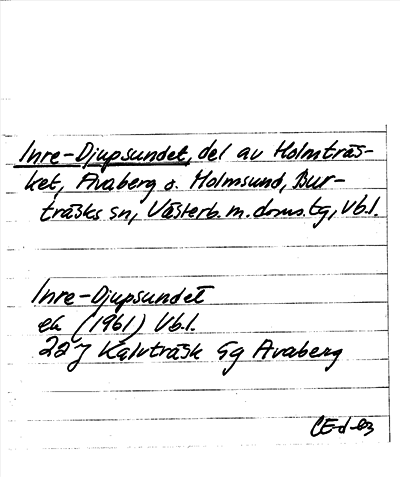 Inre-Djupsundet, del av Holmträs-
ket, Avaberg o. Holmsund, Bur-
träsks sn, Västerb. m. doms. tg, Vb.l.
Inre-Djupsundet
ek (1961) Vb.l.
22 J Kalvträsk 5g Avaberg